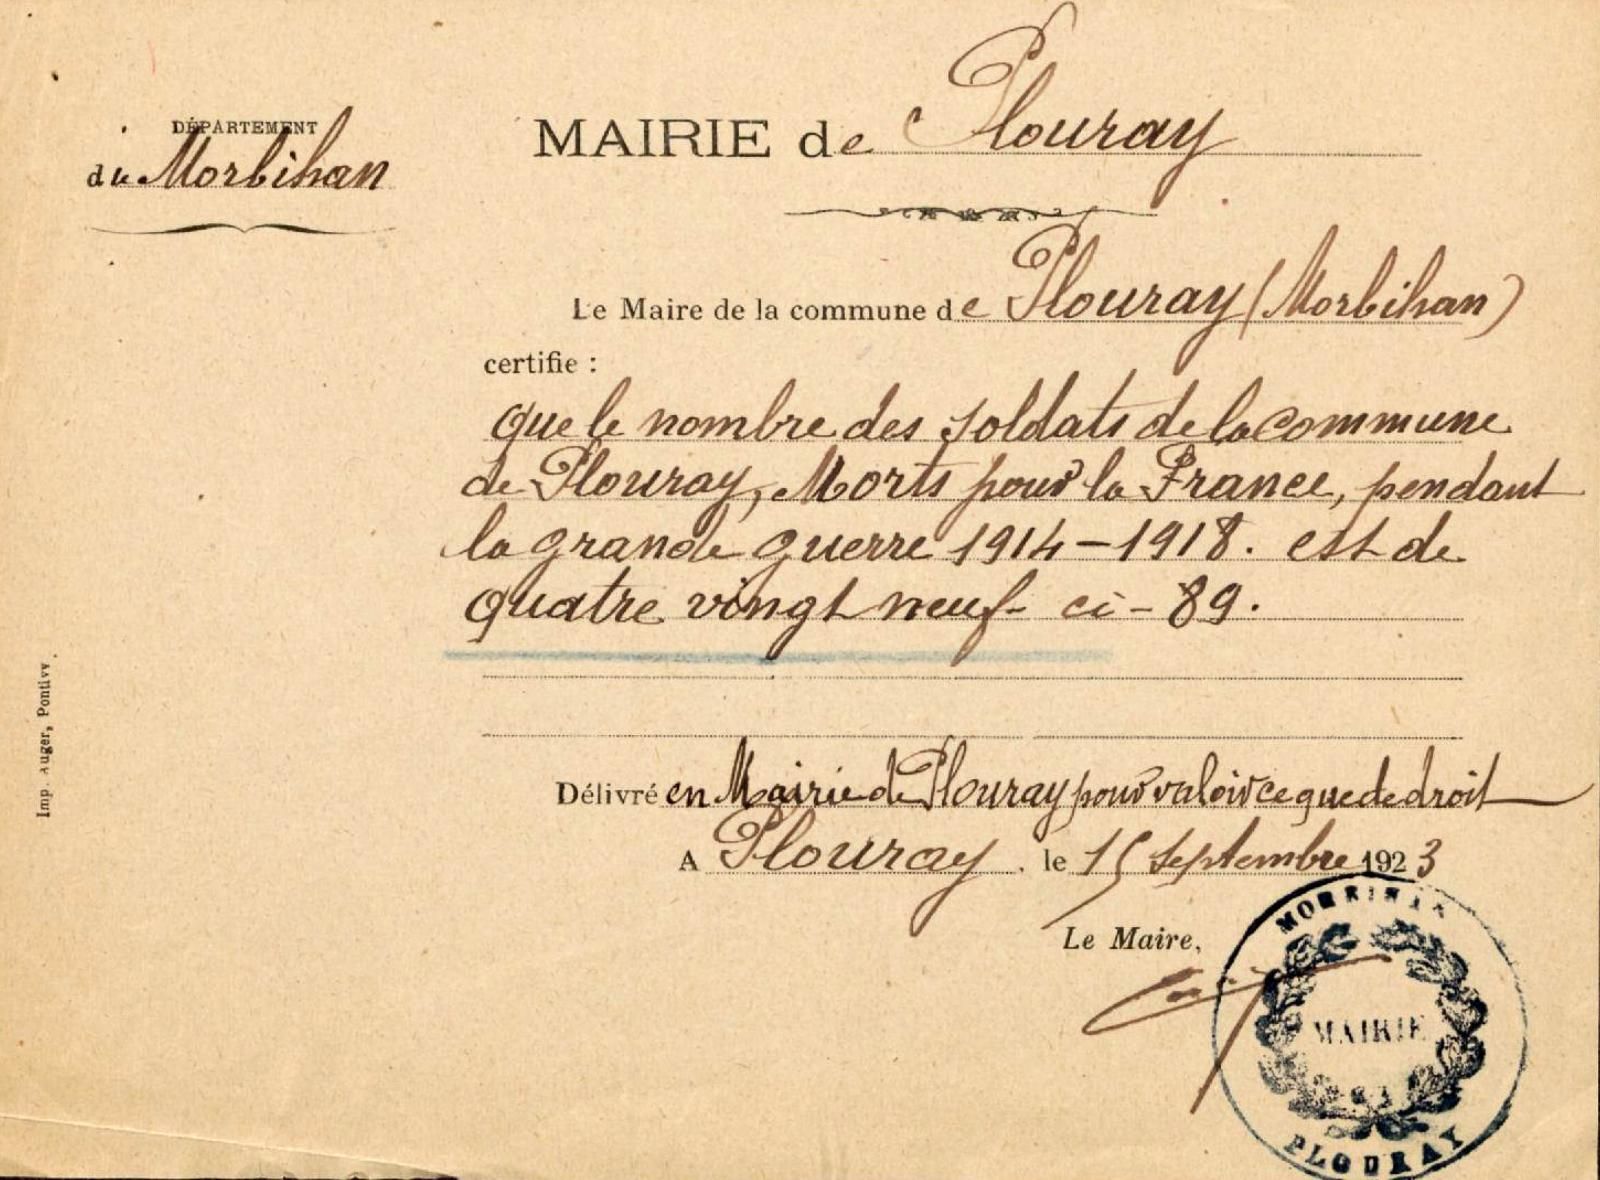 DÉPARTEMENT
du Morbihan
MAIRIE de Plouray
Le Maire de la commune de Plouray (Morbihan)
certifie :
que le nombre des soldats de la commune
de Plouray, Morts pour la France, pendant
la grande guerre 1914-1918. est de
quatre vingt neuf - ci - 89.
Délivré en Mairie de Plouray pour valoir ce que de droit
A Plouray, le 15 septembre 1923
Le Maire,
MORBIHAN
MAIRIE
PLOURAY
Imp. Auger, Pontivy.